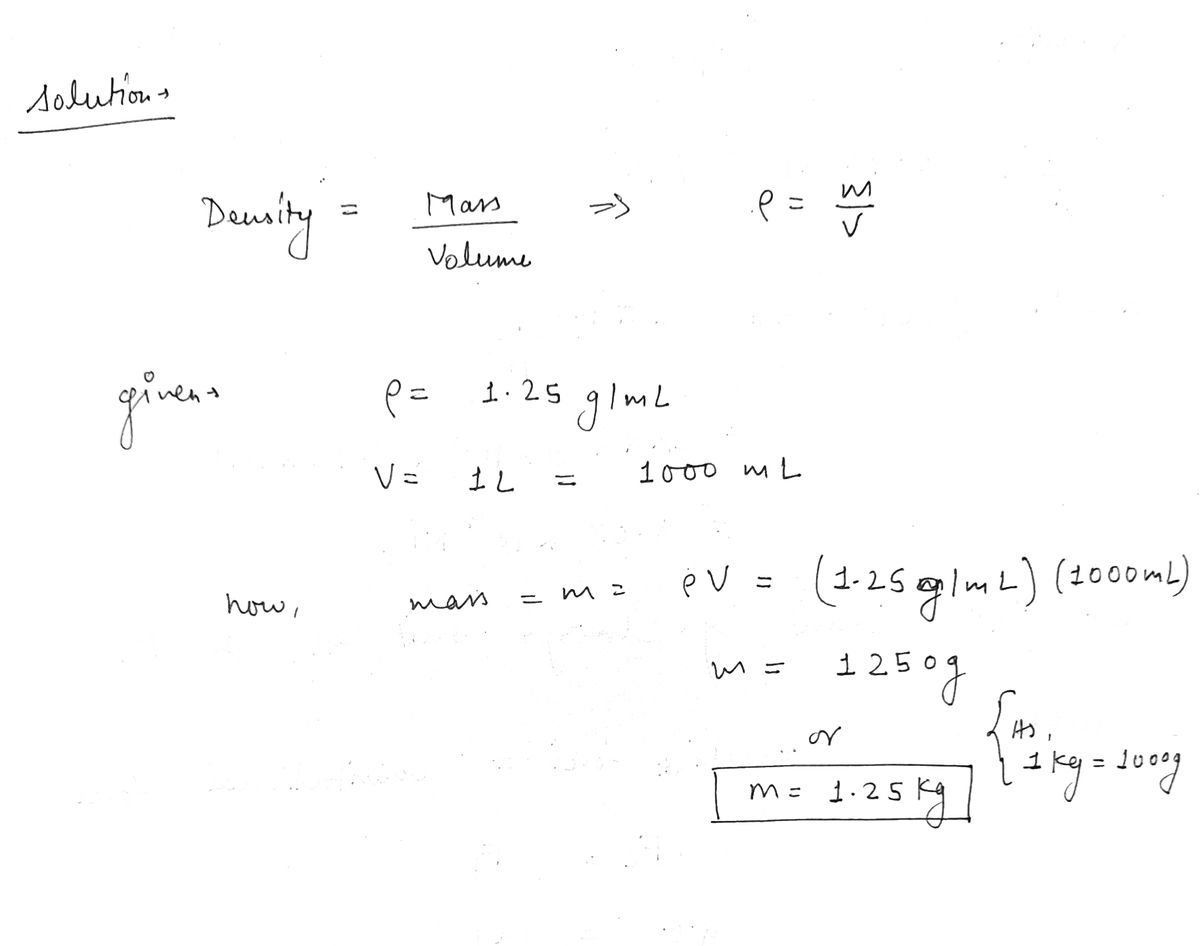 Solution→
Density = Mass / Volume ⇒ ρ = m / V
given→ ρ = 1.25 g/mL
V = 1L = 1000 mL
now, mass = m = ρV = (1.25 g/mL) (1000mL)
m = 1250g
or
{ As,
1 kg = 1000g
m = 1.25 Kg